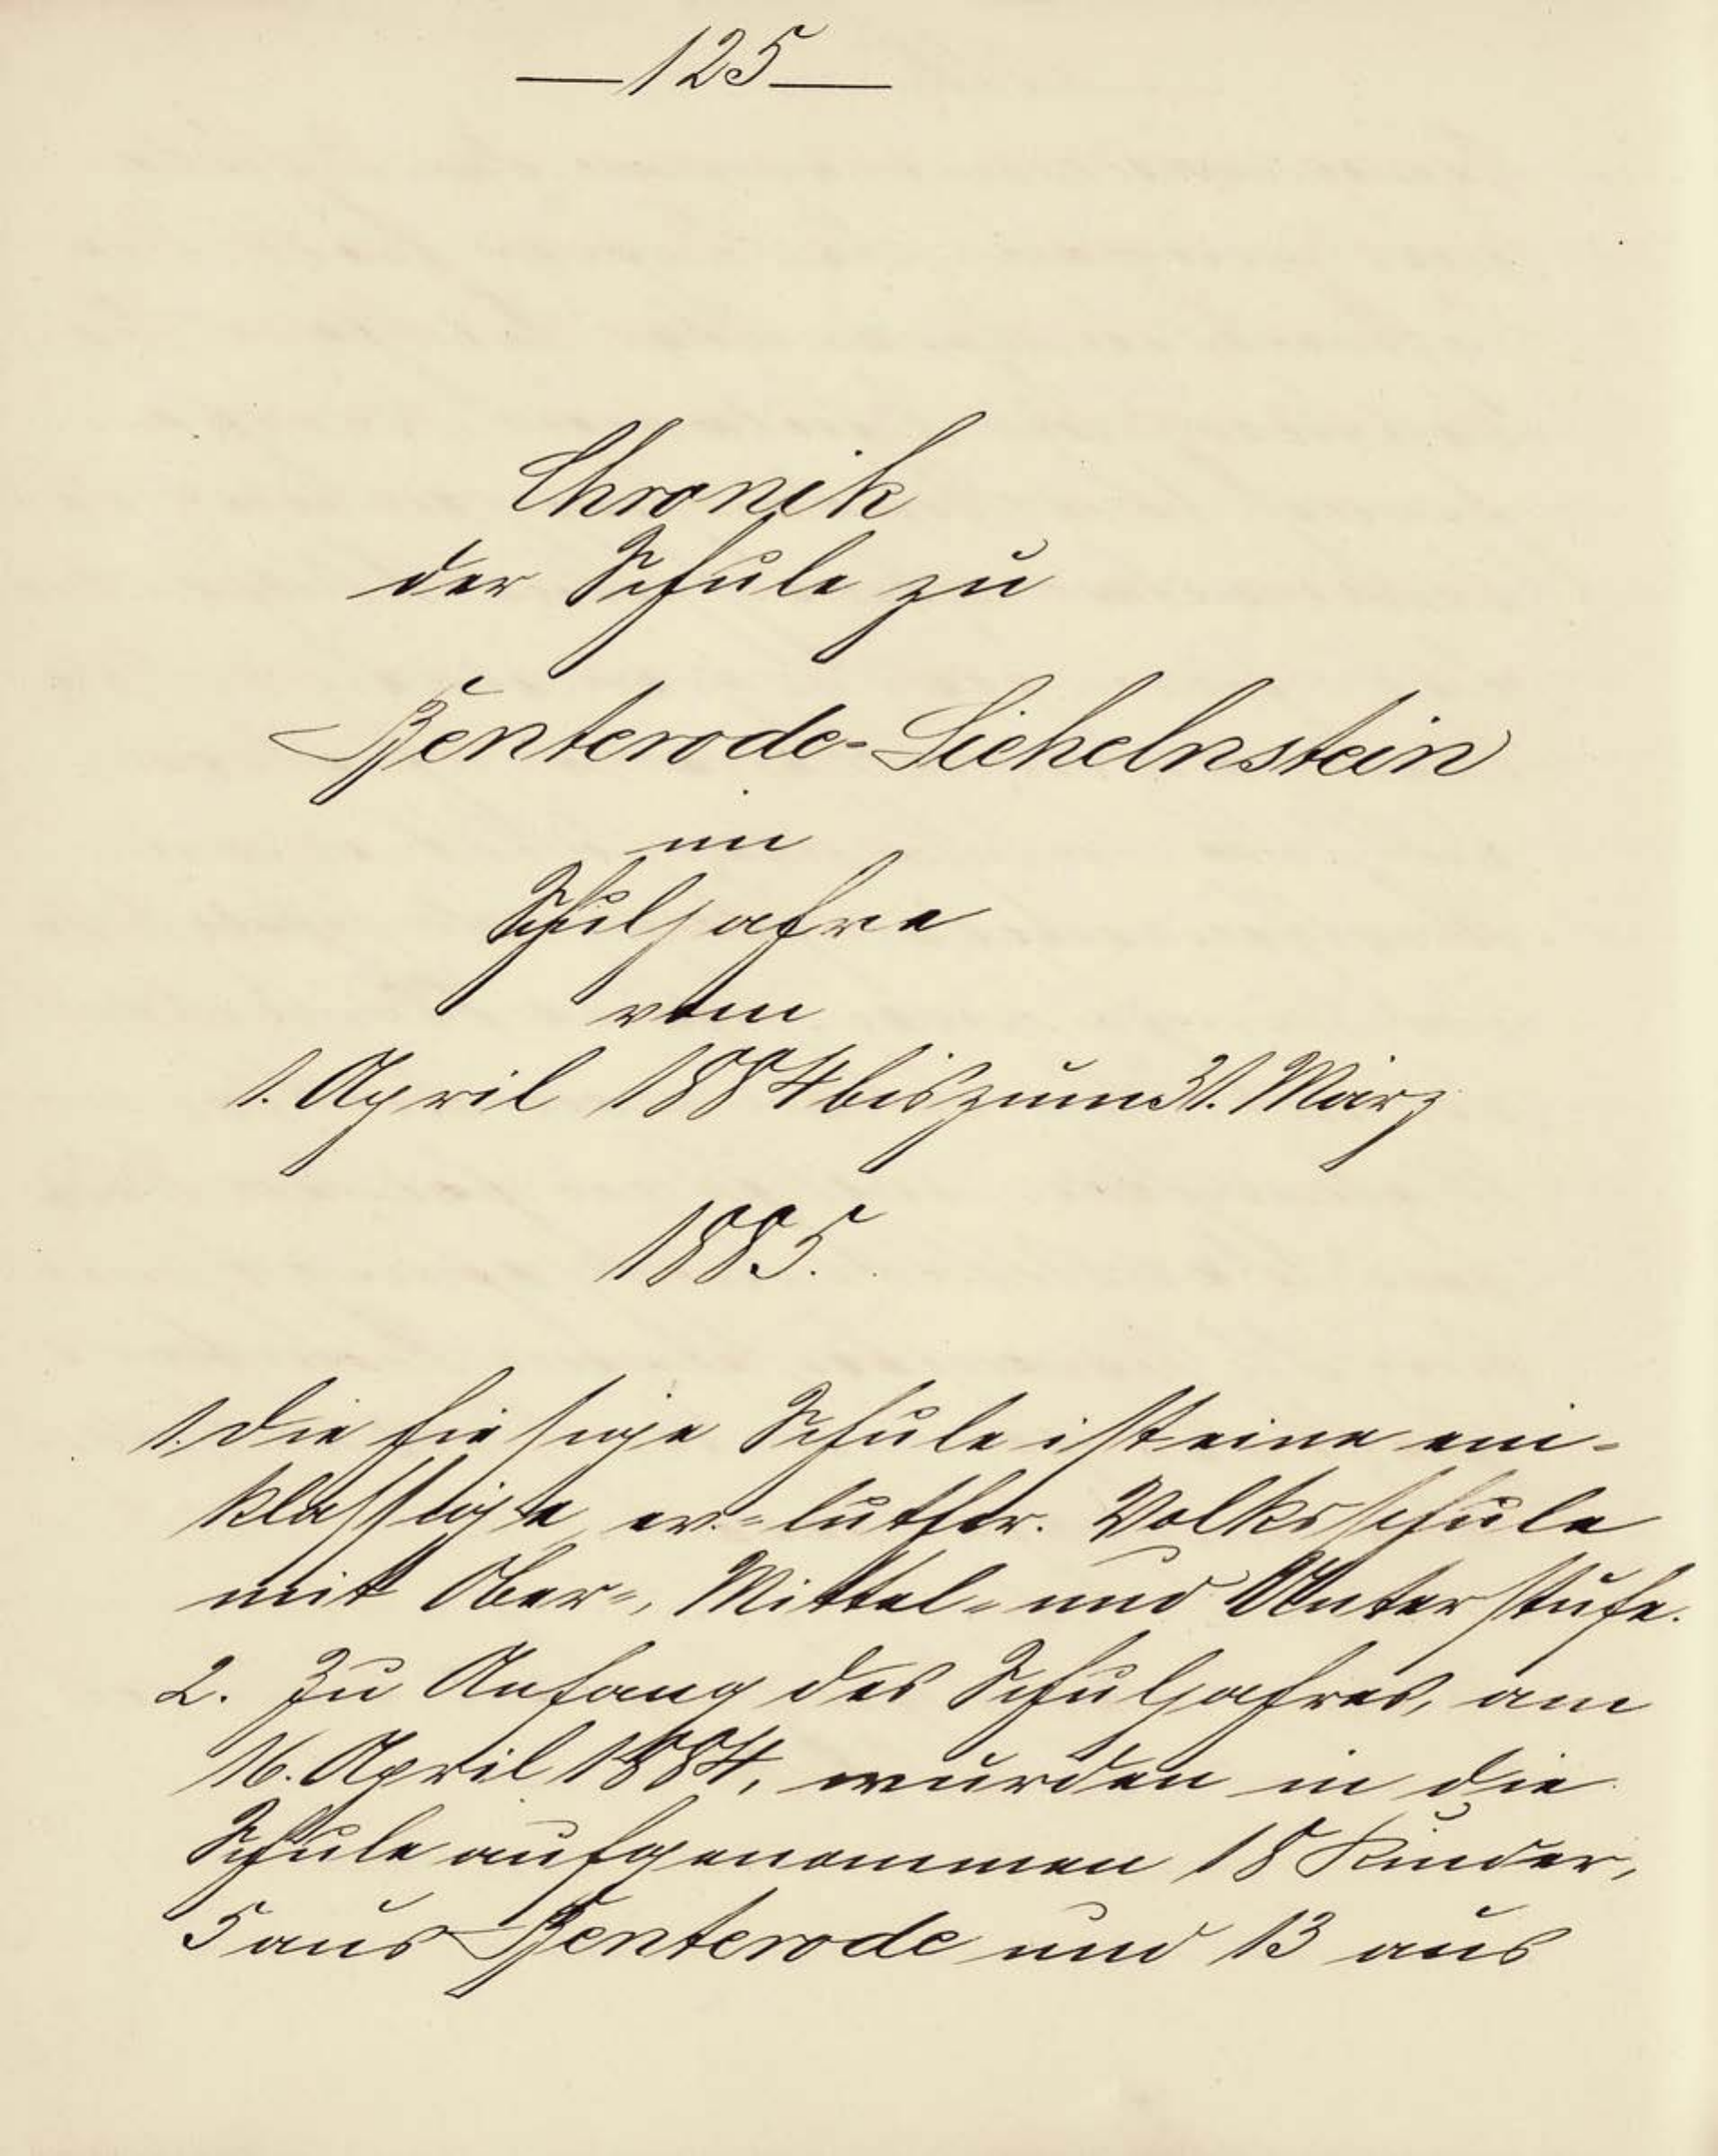 —125—
Chronik
der Schule zu
Benterode-Sichelnstein
im
Schuljahre
vom
1. April 1884 bis zum 31. März
1885.
1. Die hiesige Schule ist eine ein-
klassige ev.-luther. Volksschule
mit Ober-, Mittel- und Unterstufe.
2. Zu Anfang des Schuljahres, am
16. April 1884, wurden in die
Schule aufgenommen 18 Kinder,
5 aus Benterode und 13 aus